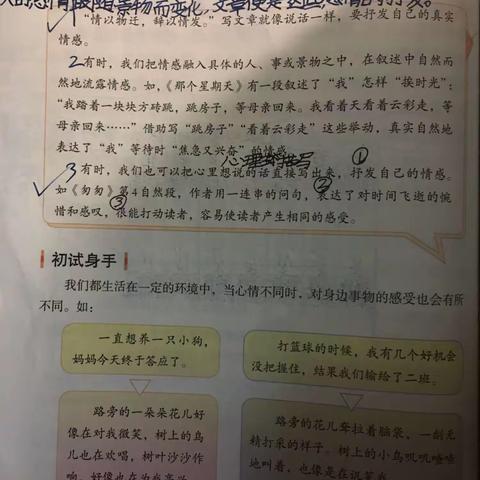 的感情跟随景物而变化,文章便是这些感情的抒发。
“情以物迁,辞以情发。”写文章就像说话一样,要抒发自己的真实
情感。
2有时,我们把情感融入具体的人、事或景物之中,在叙述中自然而
然地流露情感。如,《那个星期天》有一段叙述了“我”怎样“挨时光”:
“我踏着一块块方砖跳,跳房子,等母亲回来。我看着天看着云彩走,等
母亲回来……”借助写“跳房子”“看着云彩走”这些举动,真实自然地
表达了“我”等待时“焦急又兴奋”的情感。
心理描写 ①
3有时,我们也可以把心里想说的话直接写出来,抒发自己的情感。
如《匆匆》第4自然段,作者用一连串的问句,②表达了对时间飞逝的惋
惜和感叹,③很能打动读者,容易使读者产生相同的感受。
初试身手
我们都生活在一定的环境中,当心情不同时,对身边事物的感受也会有所
不同。如:
一直想养一只小狗,
妈妈今天终于答应了。
打篮球的时候,我有几个好机会
没把握住,结果我们输给了二班。
路旁的一朵朵花儿好
像在对我微笑,树上的鸟
儿也在欢唱,树叶沙沙作
响,好像也在为我高兴
路旁的花儿耷拉着脑袋,一副无
精打采的样子。树上的小鸟叽叽喳喳
地叫着,也像是在讥笑我